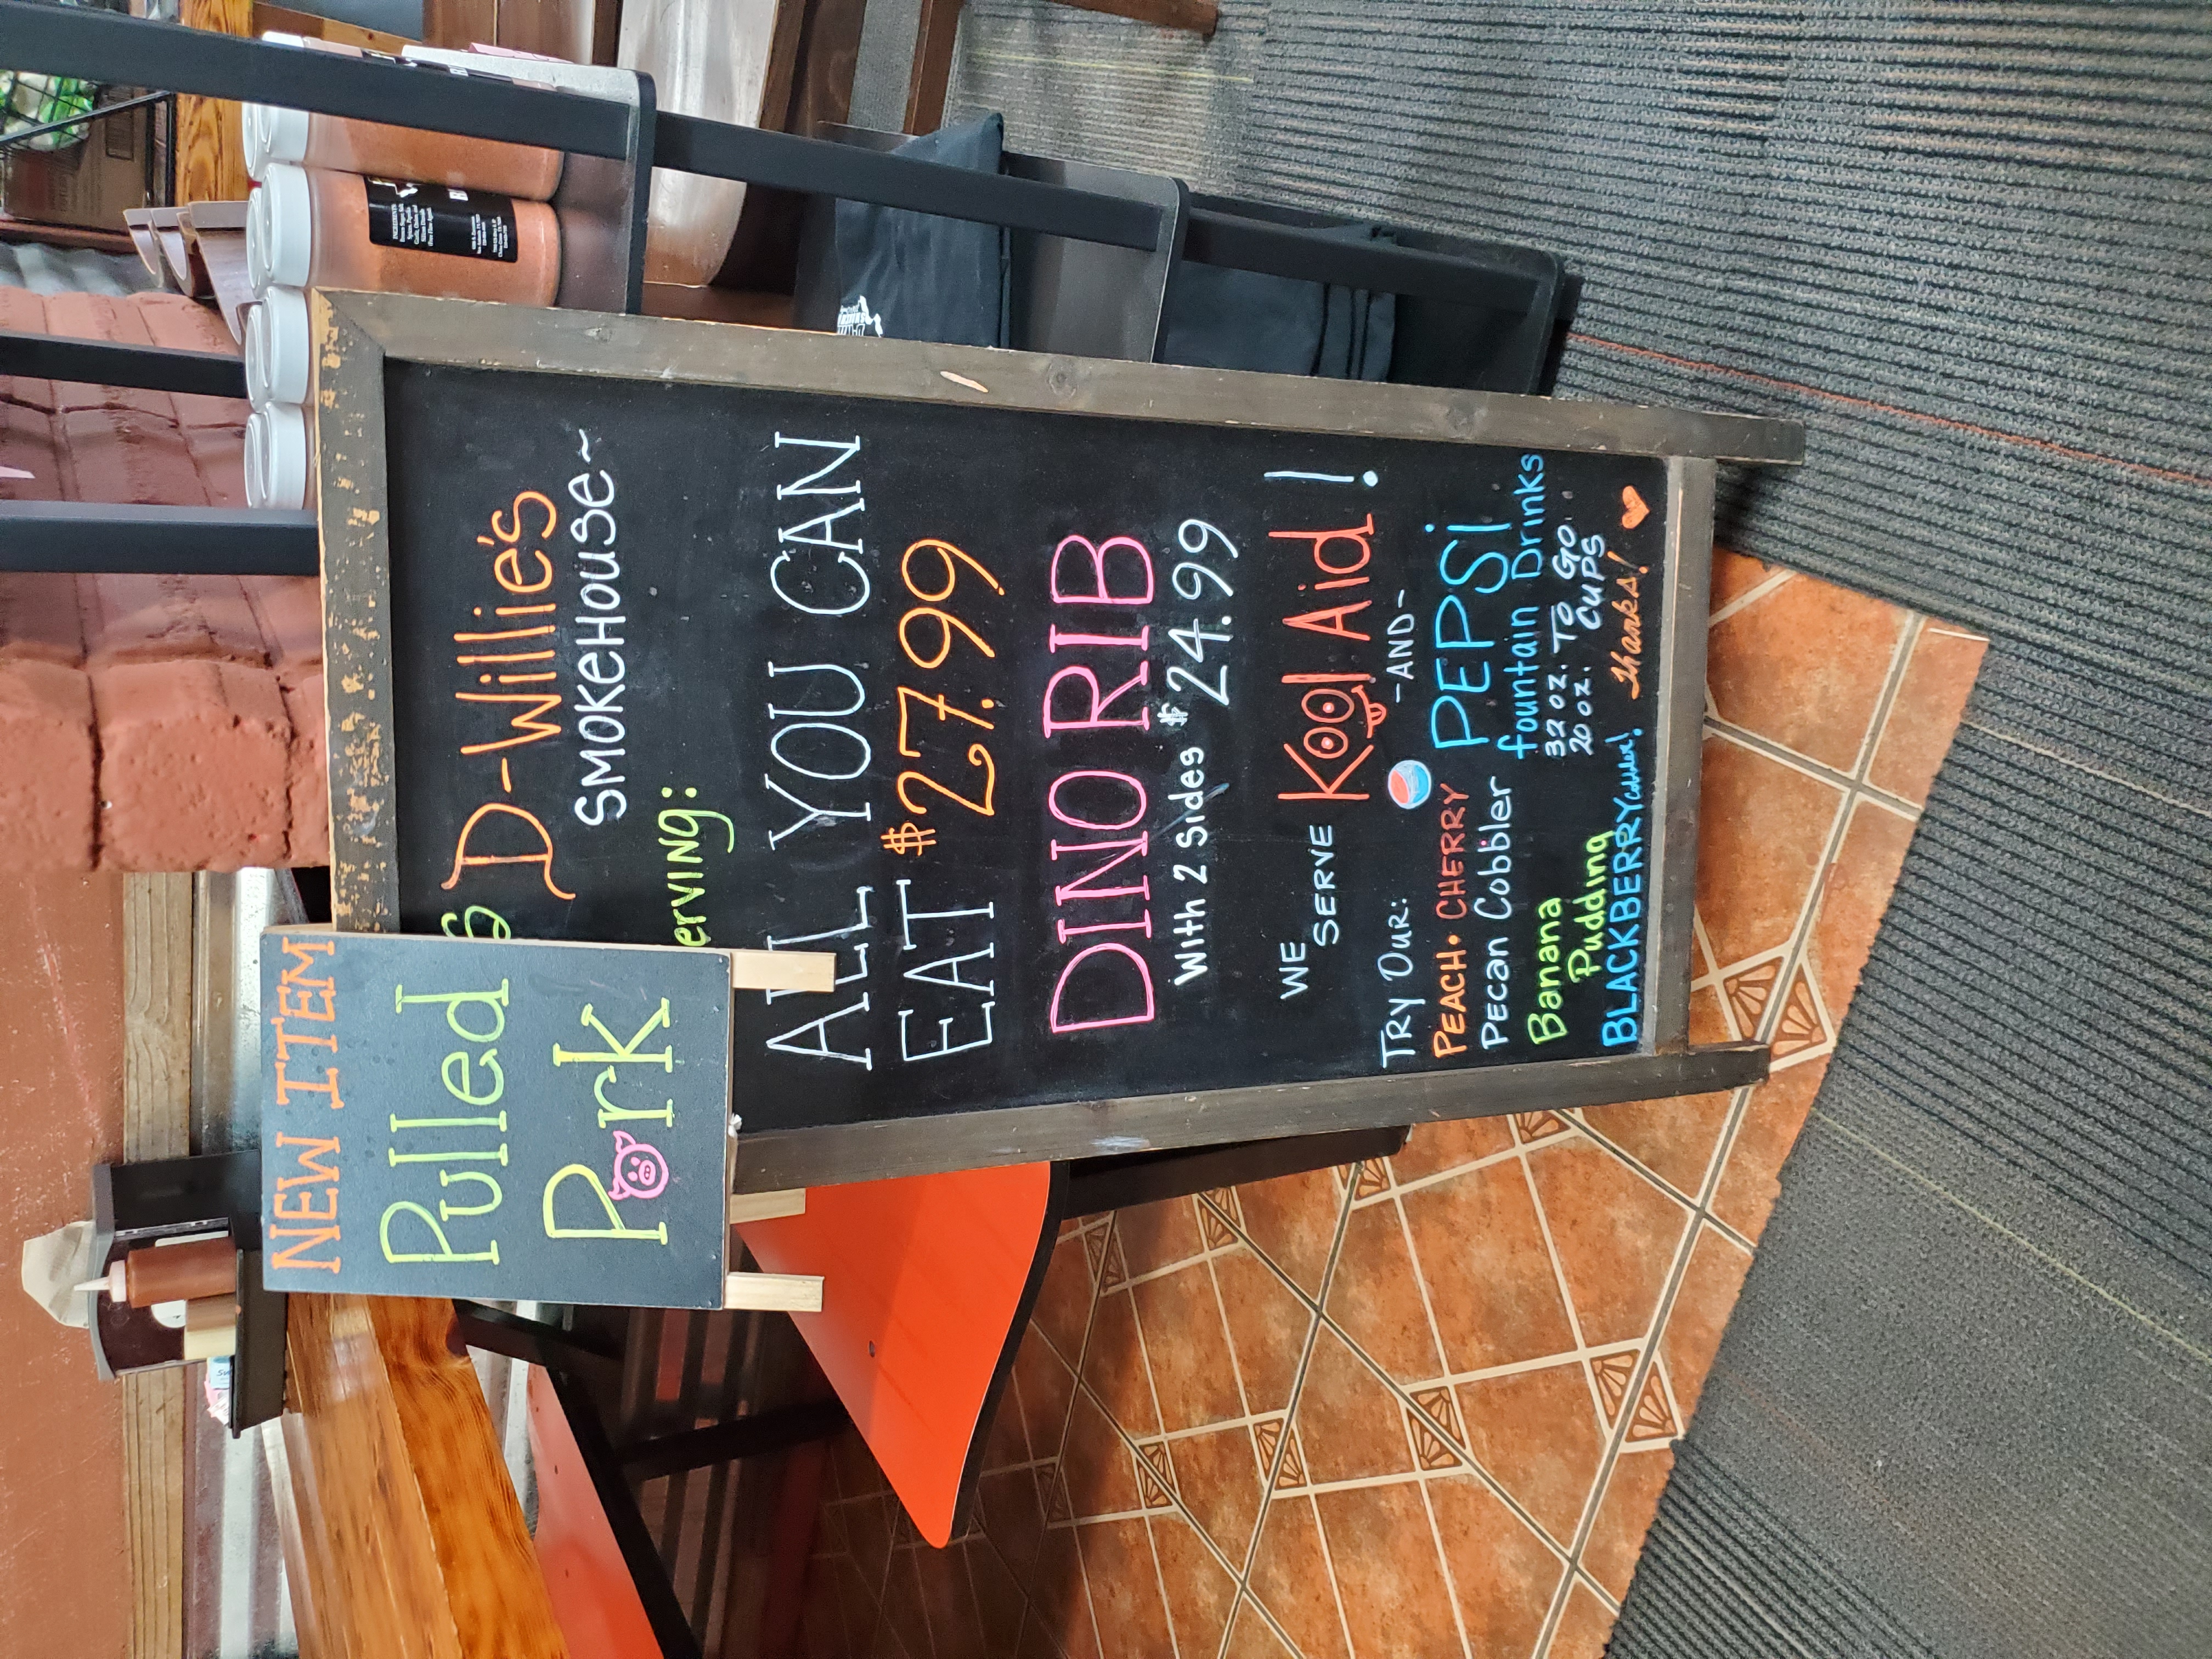 NEW ITEM
Pulled
Pork
D-Willie's
SMOKEHOUSE~
erving:
ALL YOU CAN
EAT $27.99
DINO RIB
With 2 Sides $24.99
WE
SERVE
Kool Aid!
-AND-
PEPSi
fountain Drinks
32 oz. TO GO
20 oz. CUPS
TRY OUR:
PEACH • CHERRY
PECAN Cobbler
Banana
Pudding
BLACKBERRY
thanks!